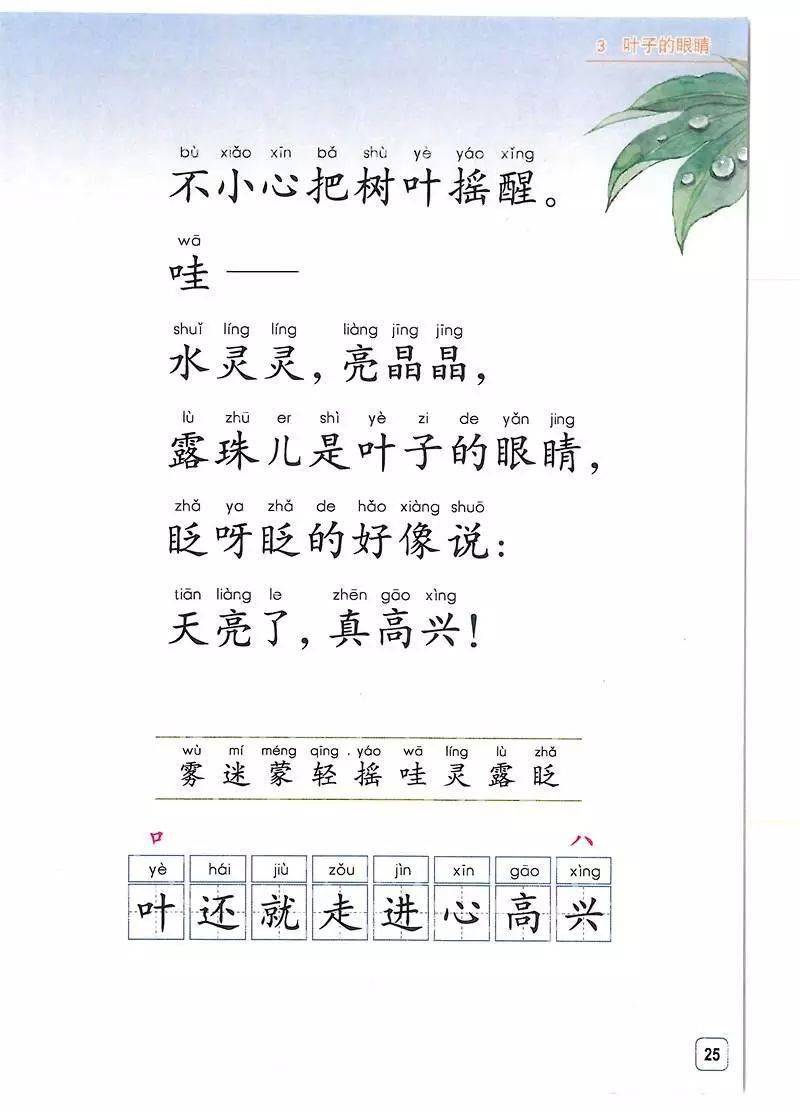 3 叶子的眼睛
bù xiǎo xīn bǎ shù yè yáo xǐng
不小心把树叶摇醒。
wā
哇——
shuǐ líng líng liàng jīng jīng
水灵灵，亮晶晶，
lù zhū er shì yè zi de yǎn jing
露珠儿是叶子的眼睛，
zhǎ ya zhǎ de hǎo xiàng shuō
眨呀眨的好像说：
tiān liàng le zhēn gāo xìng
天亮了，真高兴！
wù mí méng qīng yáo wā líng lù zhǎ
雾迷蒙轻摇哇灵露眨
口 八
yè hái jiù zǒu jìn xīn gāo xìng
叶还就走进心高兴
25